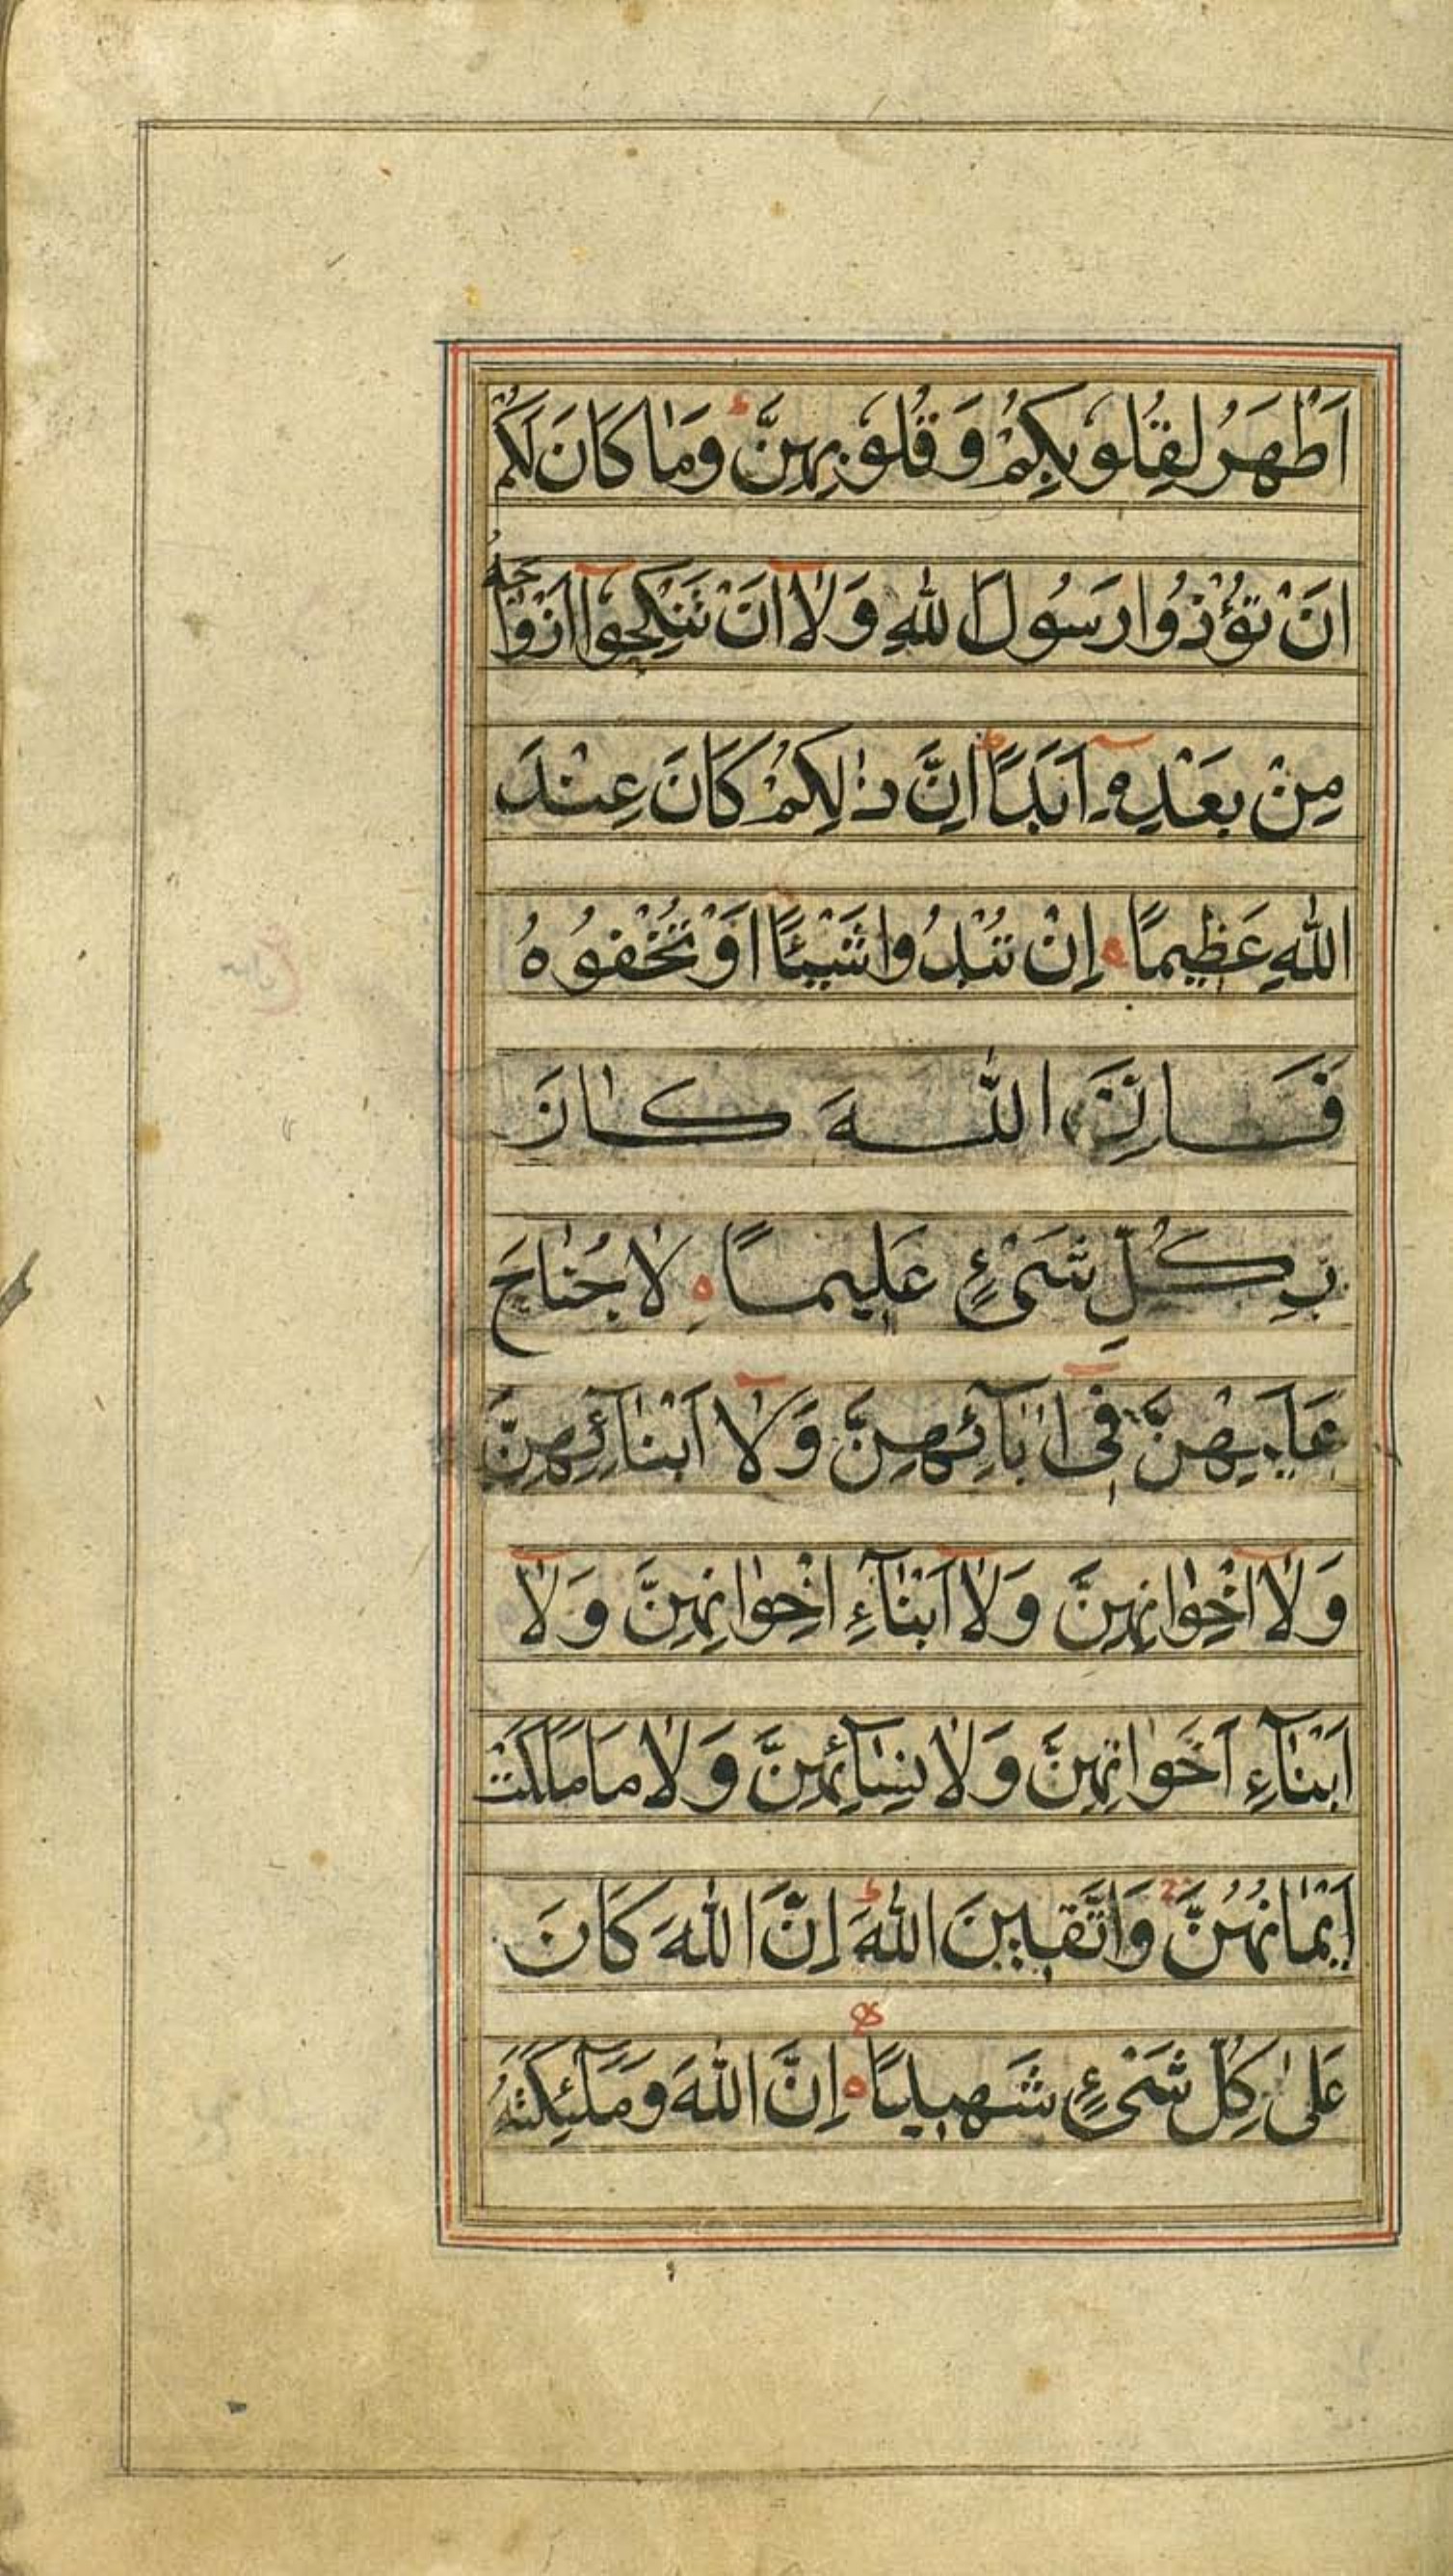 اَطْهَرُ لِقُلُوبِكُمْ وَقُلُوبِهِنَّ ط وَمَا كَانَ لَكُمْ
اَنْ تُؤْذُوا رَسُولَ اللّٰهِ وَلَا اَنْ تَنْكِحُوا اَزْوَاجَهُ
مِنْ بَعْدِهِ اَبَدًا ط اِنَّ ذٰلِكُمْ كَانَ عِنْدَ
اللّٰهِ عَظِيمًا ه اِنْ تُبْدُوا شَيْئًا اَوْ تُخْفُوهُ
فَاِنَّ اللّٰهَ كَانَ
بِكُلِّ شَیْءٍ عَلِيمًا ه لَا جُنَاحَ
عَلَيْهِنَّ فِی اٰبَآئِهِنَّ وَلَا اَبْنَآئِهِنَّ
وَلَا اِخْوَانِهِنَّ وَلَا اَبْنَآءِ اِخْوَانِهِنَّ وَلَا
اَبْنَآءِ اَخَوَاتِهِنَّ وَلَا نِسَآئِهِنَّ وَلَا مَا مَلَكَتْ
اَيْمَانُهُنَّ ج وَاتَّقِينَ اللّٰهَ ط اِنَّ اللّٰهَ كَانَ
عَلٰی كُلِّ شَیْءٍ شَهِيدًا ه اِنَّ اللّٰهَ وَمَلٰٓئِكَتَهُ